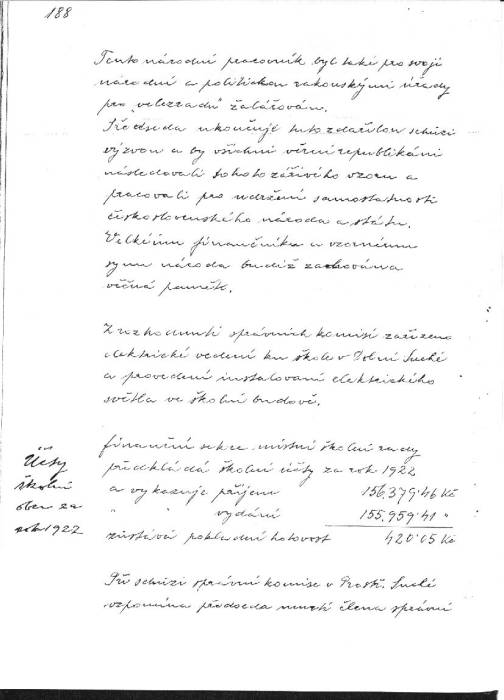 188
Tento národní pracovník byl také pro svoji
národní a politickou rakouskými úřady
pro "velezradu" žalářován.
Předseda ukončuje tuto zdařilou schůzi
výzvou a by všichni věrní republikáni
následovali tohoto zářivého vzoru a
pracovali pro udržení samostatnosti
československého národa a státu.
Velkému finančníku a vzornému
synu národa budiž zachována
věčná paměť.
Z rozhodnutí správních komisí zařízeno
elektrické vedení ku škole v Dolní Suché
a provedení instalování elektrického
světla ve školní budově.
Účty
školní
obce za
rok 1922
finanční sekce místní školní rady
předkládá školní účty za rok 1922
a vykazuje příjem 156.379.46 Kč
" " vydání 155.959.41 "
zůstává pokladní hotovost 420.05 Kč
Při schůzi správní komise v Prostř. Suché
vzpomíná předseda úmrtí člena správní